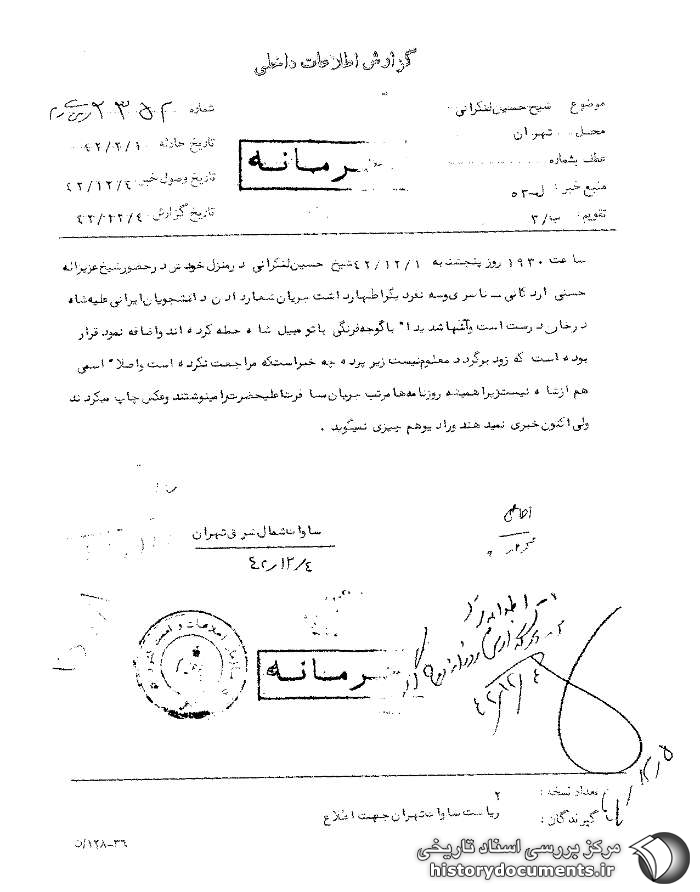 گزارش اطلاعات داخلی
موضوع شیخ حسین لنکرانی
محل تهران
عطف بشماره
منبع خبر: ل-۵۲
تقویم ب/۲
شماره ۲۳۵۲
تاریخ حادثه ۴۲/۲/۱۰
تاریخ وصول خبر ۴۲/۱۲/۴
تاریخ گزارش ۴۲/۱۲/۴
محرمانه
ساعت ۱۹۳۰ روز پنجشنبه ۴۲/۱۲/۱ شیخ حسین لنکرانی در منزل خودش در حضور شیخ عزیزاله
حسنی اردکانی و سه نفر دیگر اظهار داشت جریان شعار دادن دانشجویان ایرانی علیه شاه
در خارج درست است و آنها شدیداً با گوجه فرنگی باتومبیل شاه حمله کرده اند و اضافه نمود قرار
بوده است که زود برگردد معلوم نیست زیر پرده چه خبر است که مراجعت نکرده است و اصلاً اسمی
هم از شاه نیست زیرا همیشه روزنامه ها مرتب جریان مسافرت اعلیحضرت را مینوشتند و عکس چاپ میکردند
ولی اکنون خبری نمیدهند و رادیو هم چیزی نمیگوید .
ساواک شمال شرق تهران
۴۲/۱۲/۴
سازمان اطلاعات و امنیت کشور
محرمانه
۴۲/۱۲/۴
۱۲/۵
تعداد نسخه : ۲
گیرندگان : ریاست ساواک تهران جهت اطلاع
۳۶-۱۲۸/ن
مرکز بررسی اسناد تاریخی
historydocuments.ir